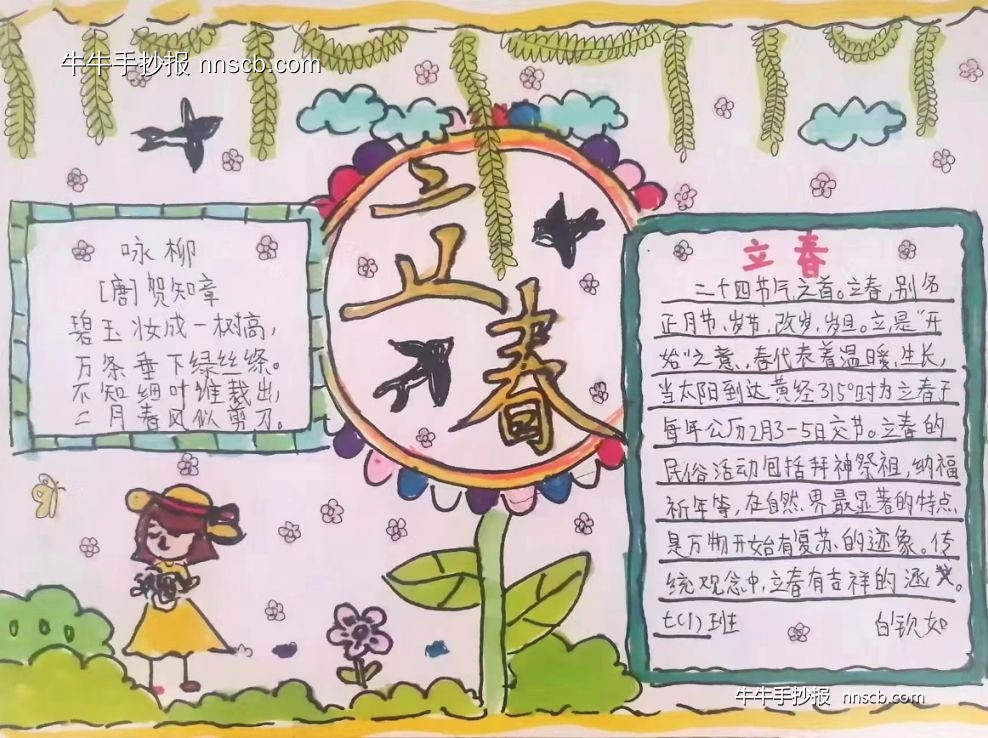 牛牛手抄报 nnscb.com
立春
咏柳
[唐]贺知章
碧玉妆成一树高，
万条垂下绿丝绦。
不知细叶谁裁出，
二月春风似剪刀。
立春
二十四节气之首。立春，别名
正月节、岁节、改岁、岁旦。立，是“开
始”之意，春代表着温暖、生长，
当太阳到达黄经315°时为立春于
每年公历2月3-5日交节。立春的
民俗活动包括拜神祭祖，纳福
祈年等，在自然界最显著的特点
是万物开始有复苏的迹象。传
统观念中，立春有吉祥的涵。
七(1)班 白钦如
牛牛手抄报 nnscb.com